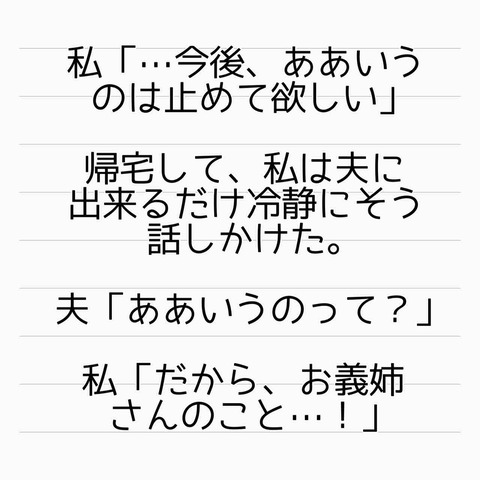 私「…今後、ああいう
のは止めて欲しい」
帰宅して、私は夫に
出来るだけ冷静にそう
話しかけた。
夫「ああいうのって？」
私「だから、お義姉
さんのこと…！」